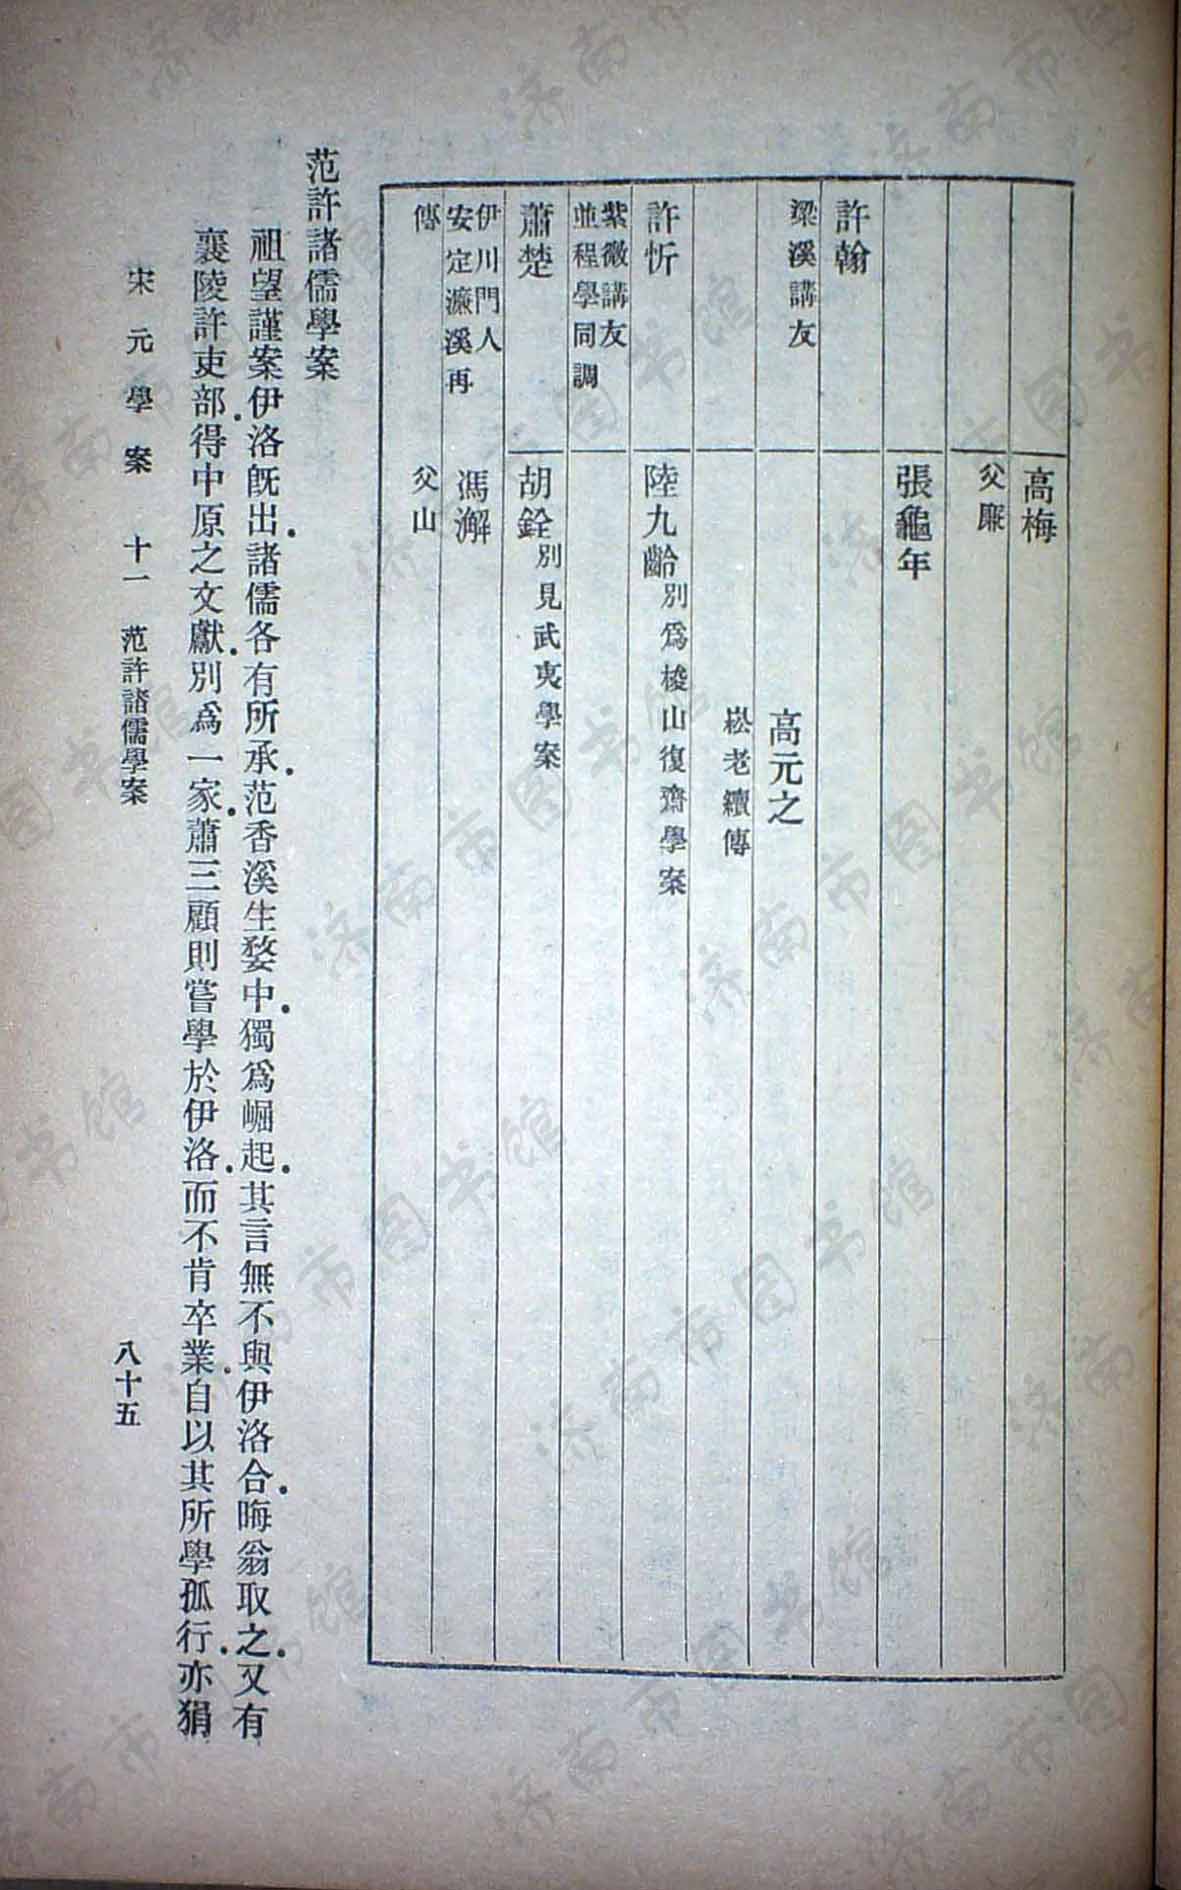 高梅
父廉
張龜年
許翰
梁溪講友
高元之
崧老續傳
許忻
陸九齡別爲梭山復齋學案
紫微講友
並程學同調
蕭楚
胡銓別見武夷學案
伊川門人
安定濂溪再
傳
馮澥
父山
范許諸儒學案
祖望謹案伊洛旣出諸儒各有所承范香溪生婺中獨爲崛起其言無不與伊洛合晦翁取之又有
襄陵許吏部得中原之文獻別爲一家蕭三顧則嘗學於伊洛而不肯卒業自以其所學孤行亦狷
宋元學案 十一 范許諸儒學案 八十五
济南市图书馆